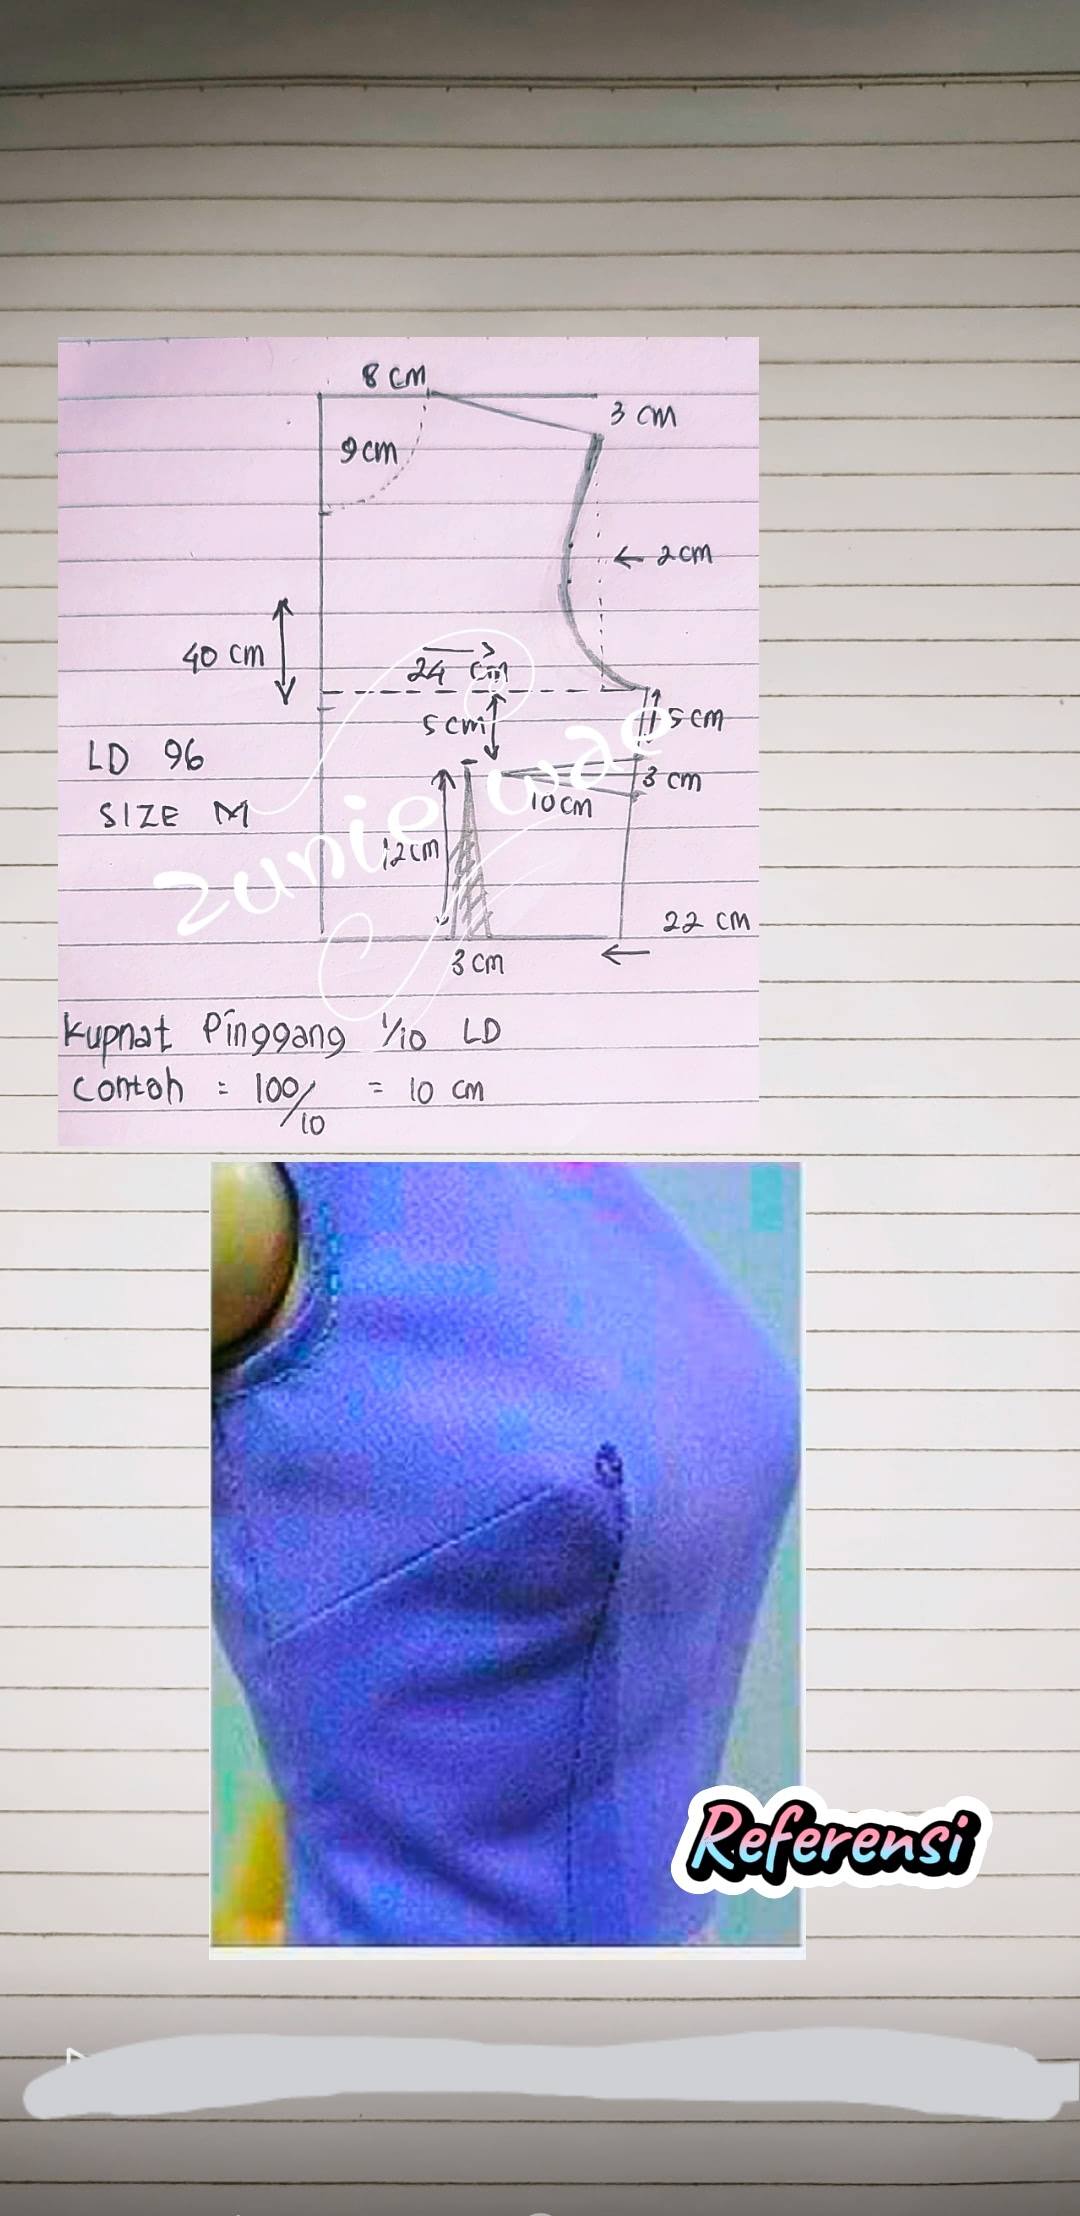 8 cm
3 cm
9 cm
← 2 cm
40 cm
24 cm
5 cm
5 cm
LD 96
3 cm
10 cm
SIZE M
12 cm
zunie wae
22 cm
3 cm
Kupnat Pinggang 1/10 LD
Contoh : 100/10 = 10 cm
Referensi